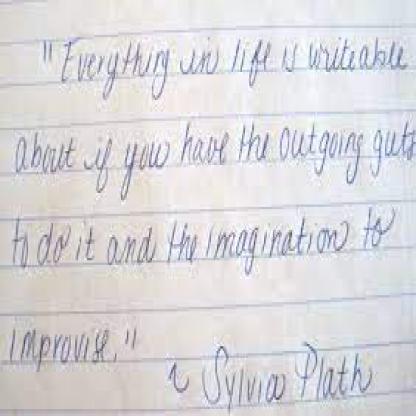 "Everything in life is writeable
about if you have the outgoing guts
to do it and the imagination to
improvise."
~ Sylvia Plath